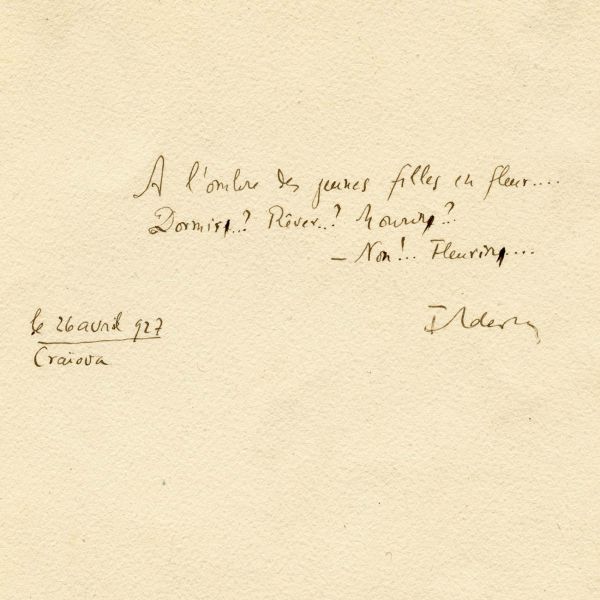 A l'ombre des jeunes filles en fleur....
Dormir..? Rêver..? Mourir..?
— Non!.. Fleurir....
le 26 avril 927
Craiova